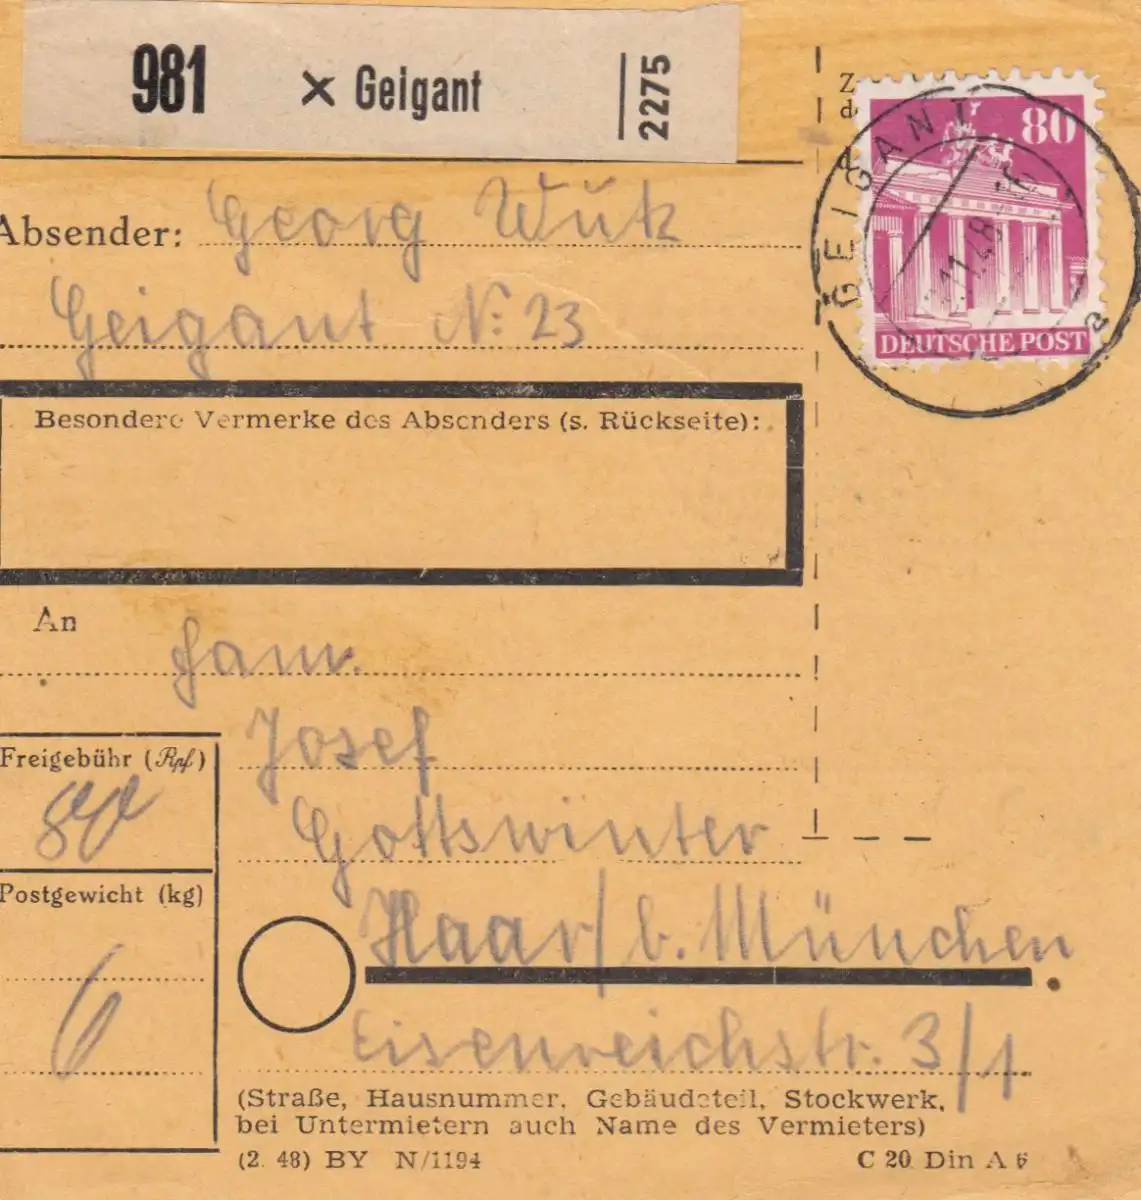 981 × Geigant 2275
80
DEUTSCHE POST
GEIGANT
a
Absender: Georg Wutz
Geigant Nr. 23
Besondere Vermerke des Absenders (s. Rückseite):
An
Fam.
Josef
Gottswinter
Haar / b. München
Eisenreichstr. 3/1
Freigebühr (Rpf)
Postgewicht (kg)
6
(Straße, Hausnummer, Gebäudeteil, Stockwerk,
bei Untermietern auch Name des Vermieters)
(2. 48) BY N/1194
C 20 Din A 6